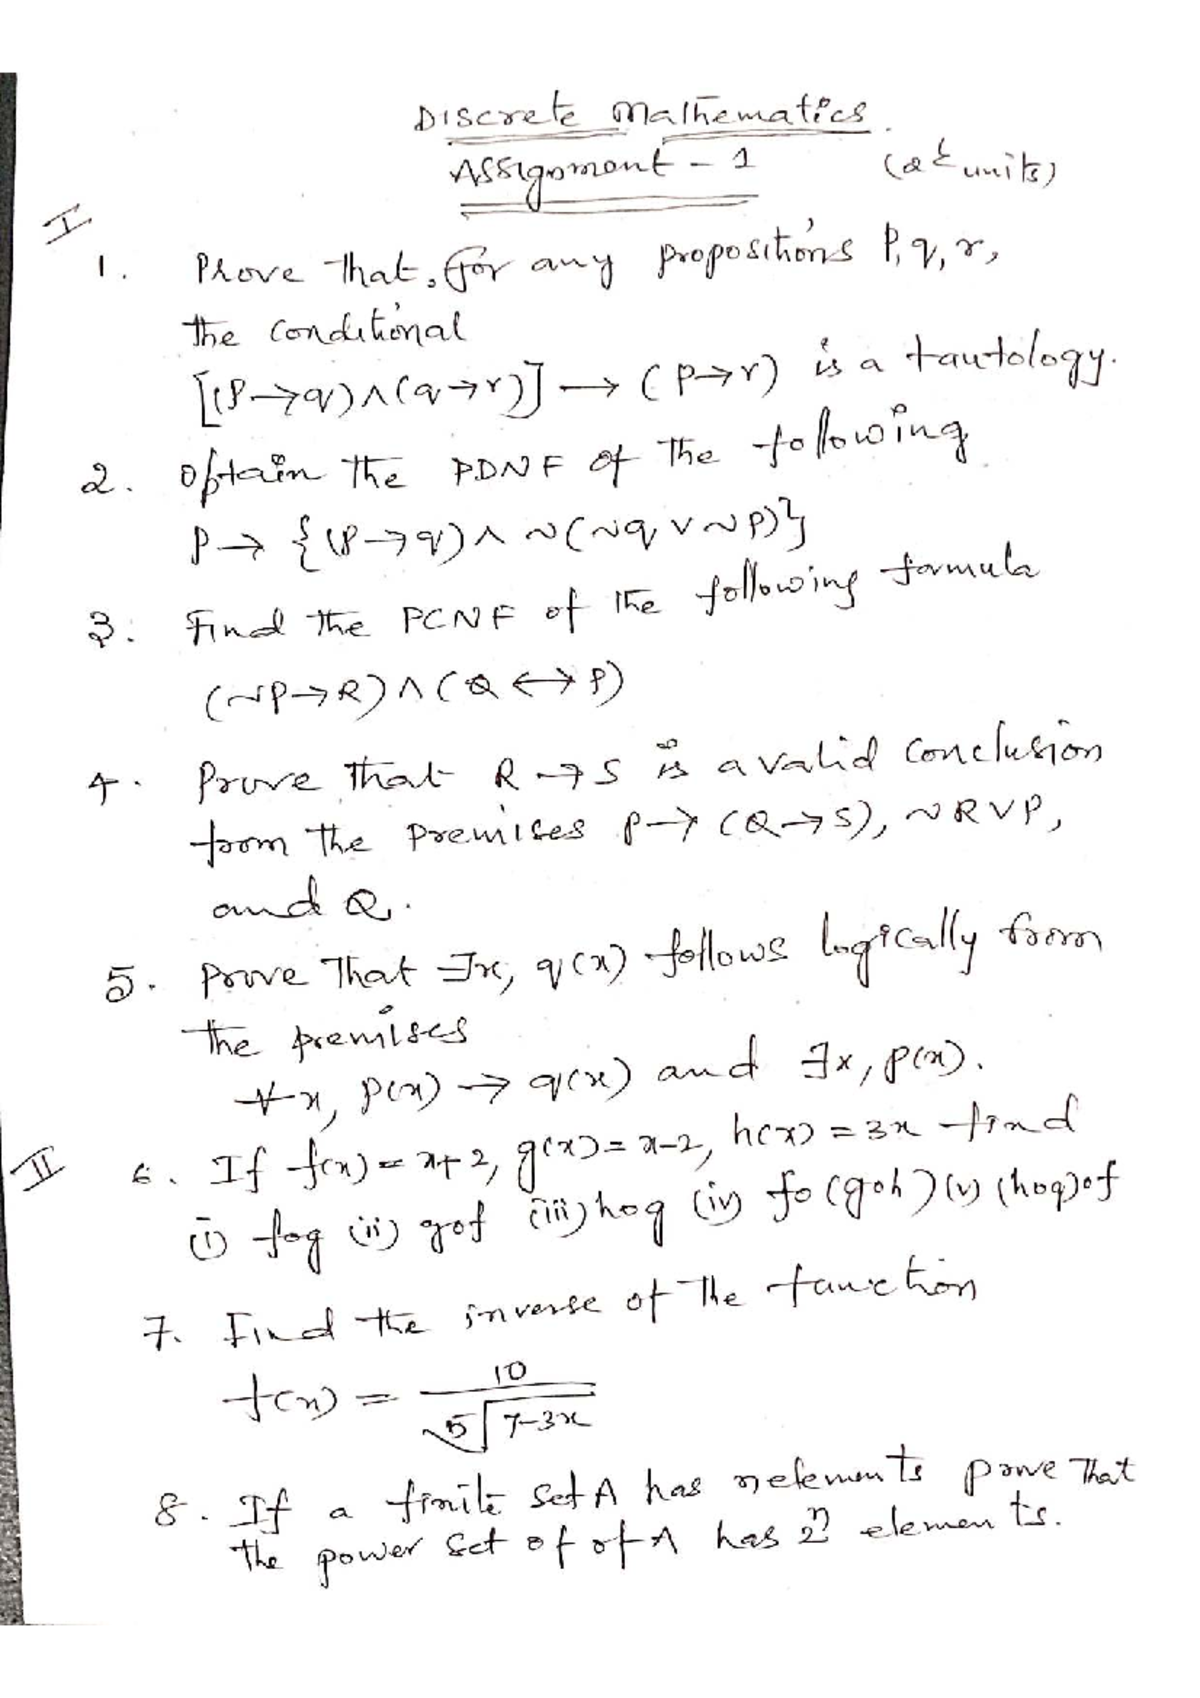 Discrete Mathematics
Assignment - 1
units)
I
1. Prove that, for any propositions p, q, r,
the conditional
[(p→q)∧(q→r)] → (p→r) is a tautology.
2. Obtain the PDNF of the following
p → {(p→q)∧ ~(~q ∨ ~p)}
3. Find the PCNF of the following formula
(~P→R)∧(Q ↔ P)
4. Prove that R→S is a valid conclusion
from the premises P→(Q→S), ~R∨P,
and Q.
5. Prove That ∃x, q(x) follows logically from
the premises
∀x, p(x) → q(x) and ∃x, p(x).
II
6. If f(x) = x+2, g(x) = x-2, h(x) = 3x find
(i) fog (ii) gof (iii) hog (iv) fo(goh) (v) (hog)of
7. Find the inverse of the function
f(x) = 10 / ⁵√7-3x
8. If a finite set A has n elements prove that
the power set of of A has 2ⁿ elements.